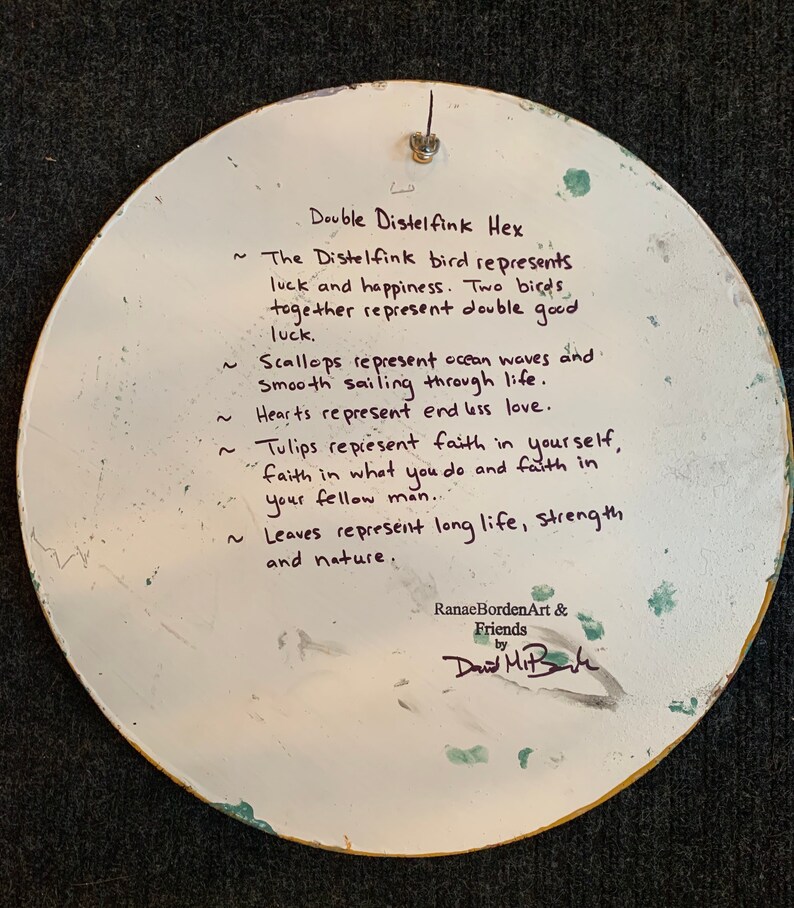 Double Distelfink Hex
~ The Distelfink bird represents
luck and happiness. Two birds
together represent double good
luck.
~ Scallops represent ocean waves and
smooth sailing through life.
~ Hearts represent endless love.
~ Tulips represent faith in yourself,
faith in what you do and faith in
your fellow man.
~ Leaves represent long life, strength
and nature.
RanaeBordenArt &
Friends
by
David